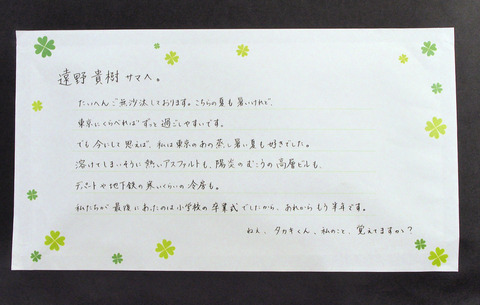 遠野貴樹サマヘ。
たいへんご無沙汰しております。こちらの夏も暑いけれど、
東京にくらべればずっと過ごしやすいです。
でも今にして思えば、私は東京のあの蒸し暑い夏も好きでした。
溶けてしまいそうに熱いアスファルトも、陽炎のむこうの高層ビルも、
デパートや地下鉄の寒いくらいの冷房も。
私たちが最後に会ったのは小学校の卒業式でしたから、あれからもう半年です。
ねえ、タカキくん。私のこと、覚えてますか？